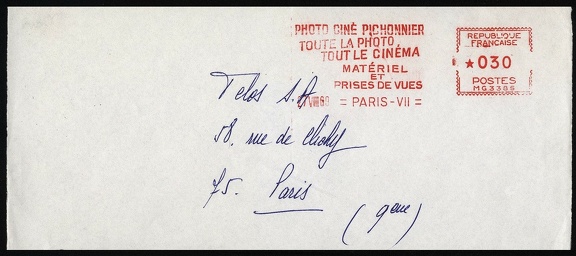 PHOTO CINÉ PICHONNIER
TOUTE LA PHOTO
TOUT LE CINÉMA
MATÉRIEL
ET
PRISES DE VUES
= PARIS-VII =
REPUBLIQUE
FRANCAISE
★030
POSTES
Telos S.A
58, rue de Clichy
75. Paris
(9eme)